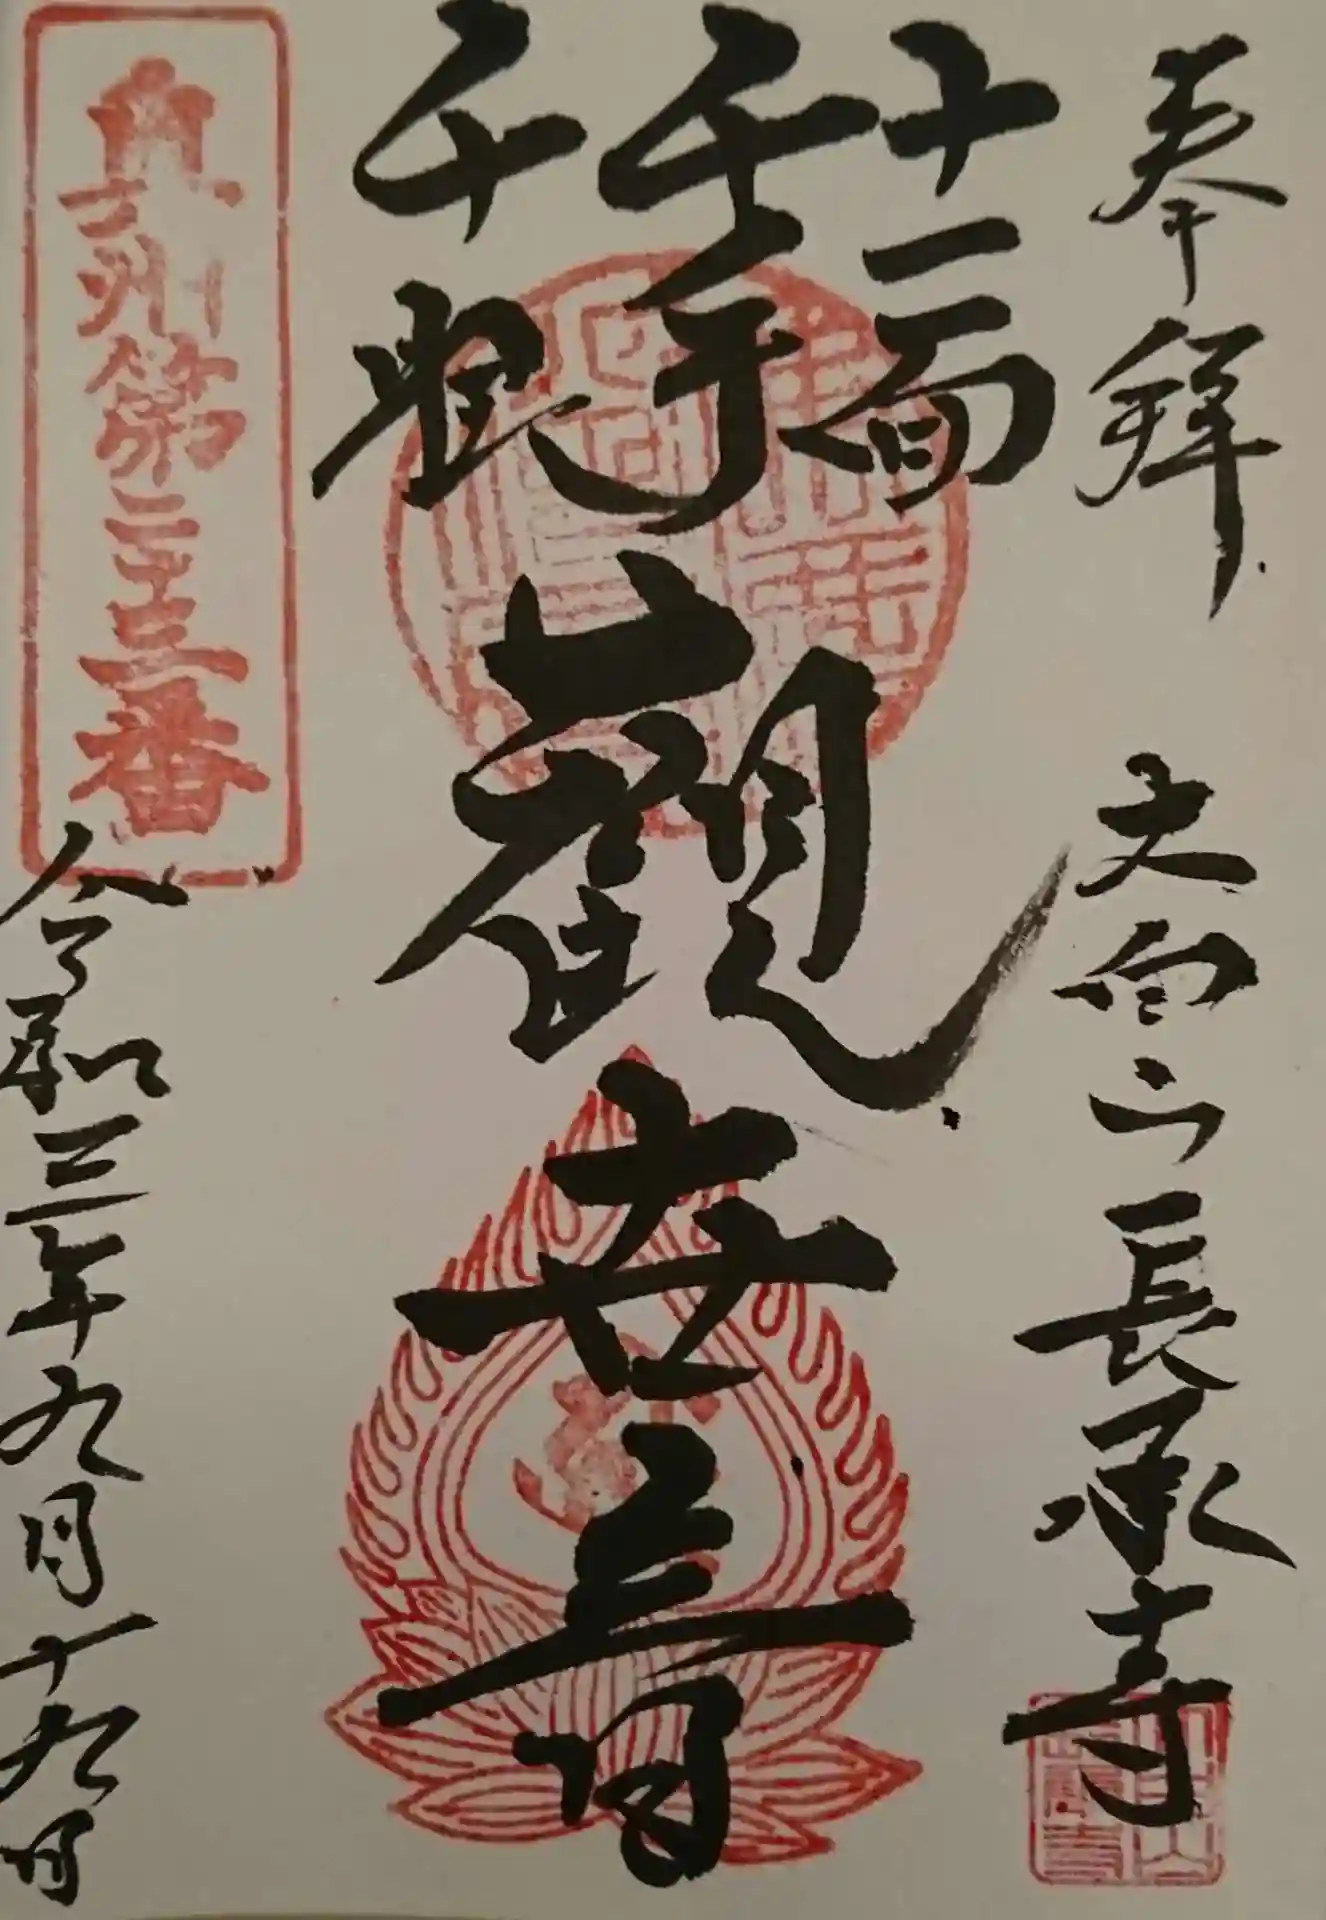 奉拝
山長承寺
十一面
千手
千眼
觀世音
奥州第二十三番
令和三年九月十九日